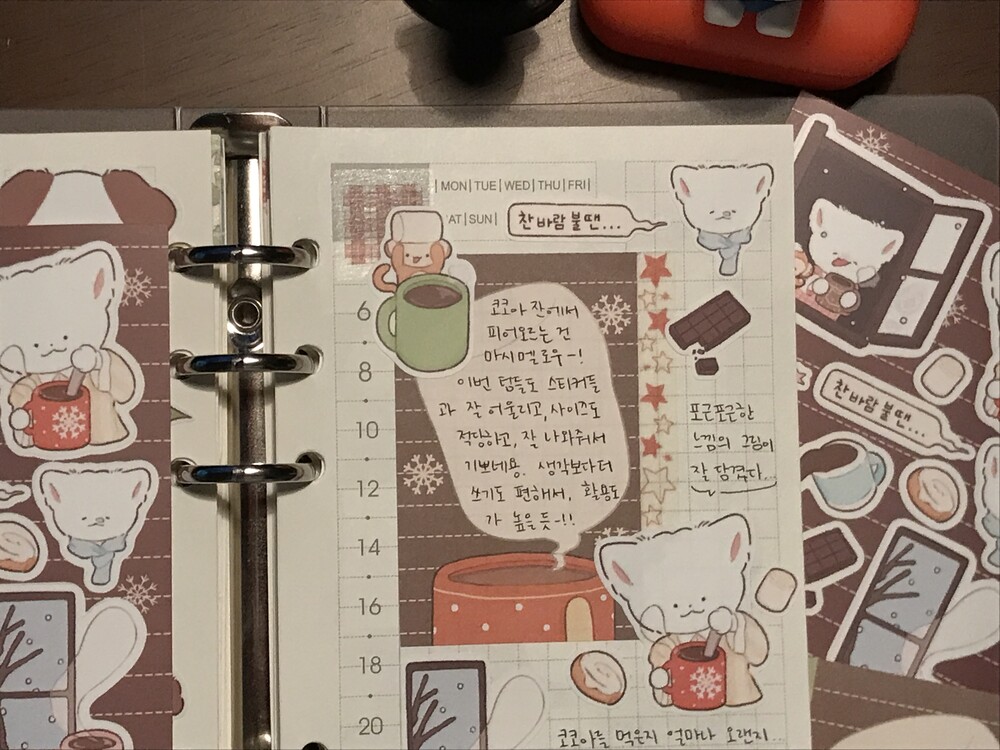 MON|TUE|WED|THU|FRI|
AT|SUN|
찬 바람 불 땐...
6
8
10
12
14
16
18
20
코코아 잔에서
피어오르는 건
마시멜로우-!
이번 텀들도 스티커들
과 잘 어울리고, 사이즈도
적당하고, 잘 나와줘서
기쁘네용. 생각보다 더
쓰기도 편해서, 활용도
가 높을 듯-!!
포근포근한
느낌의 그림이
잘 담겼다...
코코아를 먹은지 얼마나 오랜지...
찬 바람 불 땐...